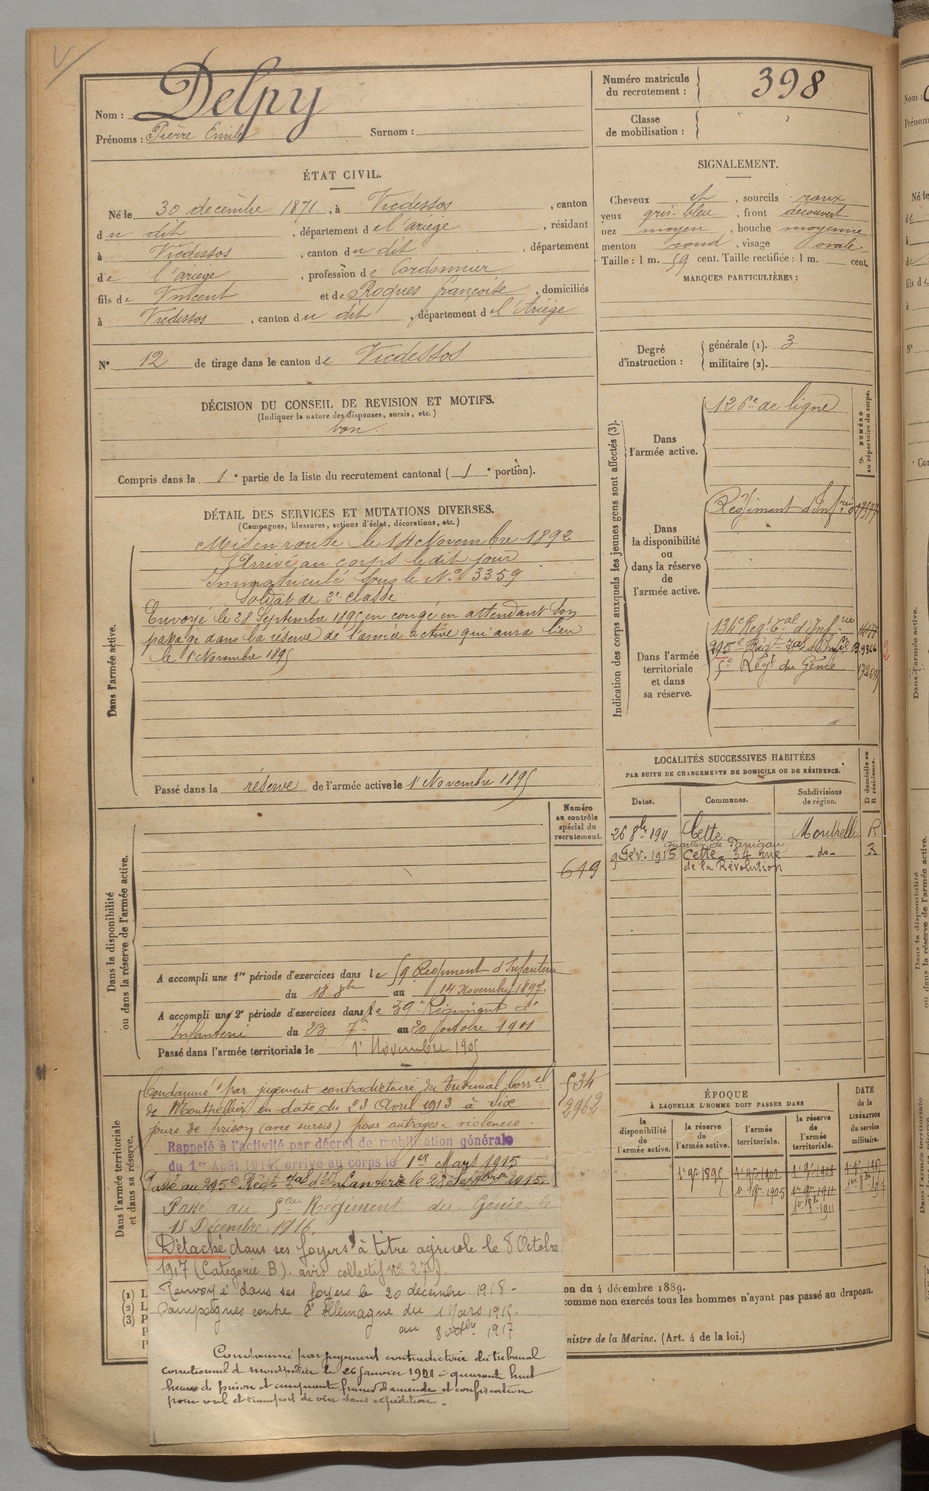 Nom : Delpy
Prénoms : Pierre Emile Surnom :
Numéro matricule du recrutement : 398
Classe de mobilisation :
ÉTAT CIVIL.
Né le 30 decembre 1871, à Vicdessos, canton
du dit, département de l'ariège, résidant
à Vicdessos, canton du dit, département
de l'ariege, profession de Cordonnier
fils de Vincent et de Roques françoise, domiciliés
à Vicdessos, canton du dit, département de l'Ariège
N° 12 de tirage dans le canton de Vicdessos
SIGNALEMENT.
Cheveux et, sourcils roux
yeux gris-bleu, front découvert
nez moyen, bouche moyenne
menton rond, visage ovale
Taille : 1 m. 59 cent. Taille rectifiée : 1 m. cent.
MARQUES PARTICULIÈRES :
Degré d'instruction : générale (1). 3
militaire (2).
DÉCISION DU CONSEIL DE REVISION ET MOTIFS.
(Indiquer la nature des dispenses, sursis, etc.)
bon
Compris dans la 1e partie de la liste du recrutement cantonal (1e portion).
DÉTAIL DES SERVICES ET MUTATIONS DIVERSES.
(Campagnes, blessures, actions d'éclat, décorations, etc.)
Dans l'armée active.
Mis en route le 14 Novembre 1892
Arrivé au corps le dit jour
Immatriculé sous le N° 3359
Soldat de 2e classe
Envoyé le 28 Septembre 1895 en congé en attendant son
passage dans la réserve de l'armée active qui aura lieu
le 1 Novembre 1895
Passé dans la réserve de l'armée active le 1 Novembre 1895
Indication des corps auxquels les jeunes gens sont affectés (3).
NUMÉRO au répertoire du corps.
Dans l'armée active.
126e de ligne
Dans la disponibilité ou dans la réserve de l'armée active.
Régiment d'Infrie
Dans l'armée territoriale et dans sa réserve.
134e Regt Tal d'Infrie
295e Regt Tal d'Infie
5e Regt du Génie
LOCALITÉS SUCCESSIVES HABITÉES
PAR SUITE DE CHANGEMENTS DE DOMICILE OU DE RÉSIDENCE.
Dates. Communes. Subdivisions de région. D domicile ou R résidence.
Cette Montpellier R
9 Fév. 1915 Cette 34 rue -do- R
de la Révolution
Numéro au contrôle spécial du recrutement.
619
Dans la disponibilité ou dans la réserve de l'armée active.
A accompli une 1re période d'exercices dans le 59 Régiment d'Infanterie
du 18 8bre au 14 Novembre 1897.
A accompli une 2e période d'exercices dans le 59e Régiment d'
Infanterie du 23 7bre au 20 octobre 1901
Passé dans l'armée territoriale le 1er Novembre 1905
Dans l'armée territoriale et dans sa réserve.
534
2962
Condamné par jugement contradictoire du tribunal correl
de Montpellier en date du 23 Avril 1913 à six
jours de prison (avec sursis) pour outrages & violences.
Rappelé à l'activité par décret de mobilisation générale
du 1er Août 1914 arrivé au corps le 1er Mars 1915
Passé au 295e Régt Tal d'Infanterie le
Passé au 5ème Régiment du Génie le
18 Décembre 1916.
Détaché dans ses foyers à titre agricole le 8 Octobre
1917 (Catégorie B). avis collectif n° 27
Renvoyé dans ses foyers le 20 decembre 1918 -
Campagnes contre l'Allemagne du 1 Mars 1915
au 8 octbre 1917
Condamné par jugement contradictoire du tribunal
correctionnel de Montpellier le 26 janvier 1921 à quarante huit
heures de prison et cinquante francs d'amende et confiscation
pour vol et transport de vin sans expédition.
ÉPOQUE
À LAQUELLE L'HOMME DOIT PASSER DANS
la disponibilité de l'armée active. la réserve de l'armée active. l'armée territoriale. la réserve de l'armée territoriale.
DATE de la LIBÉRATION du service militaire.
1er 9bre 1895
on du 4 décembre 1889.
comme non exercés tous les hommes n'ayant pas passé au drapeau.
inistre de la Marine. (Art. 4 de la loi.)
(1)
(2)
(3)